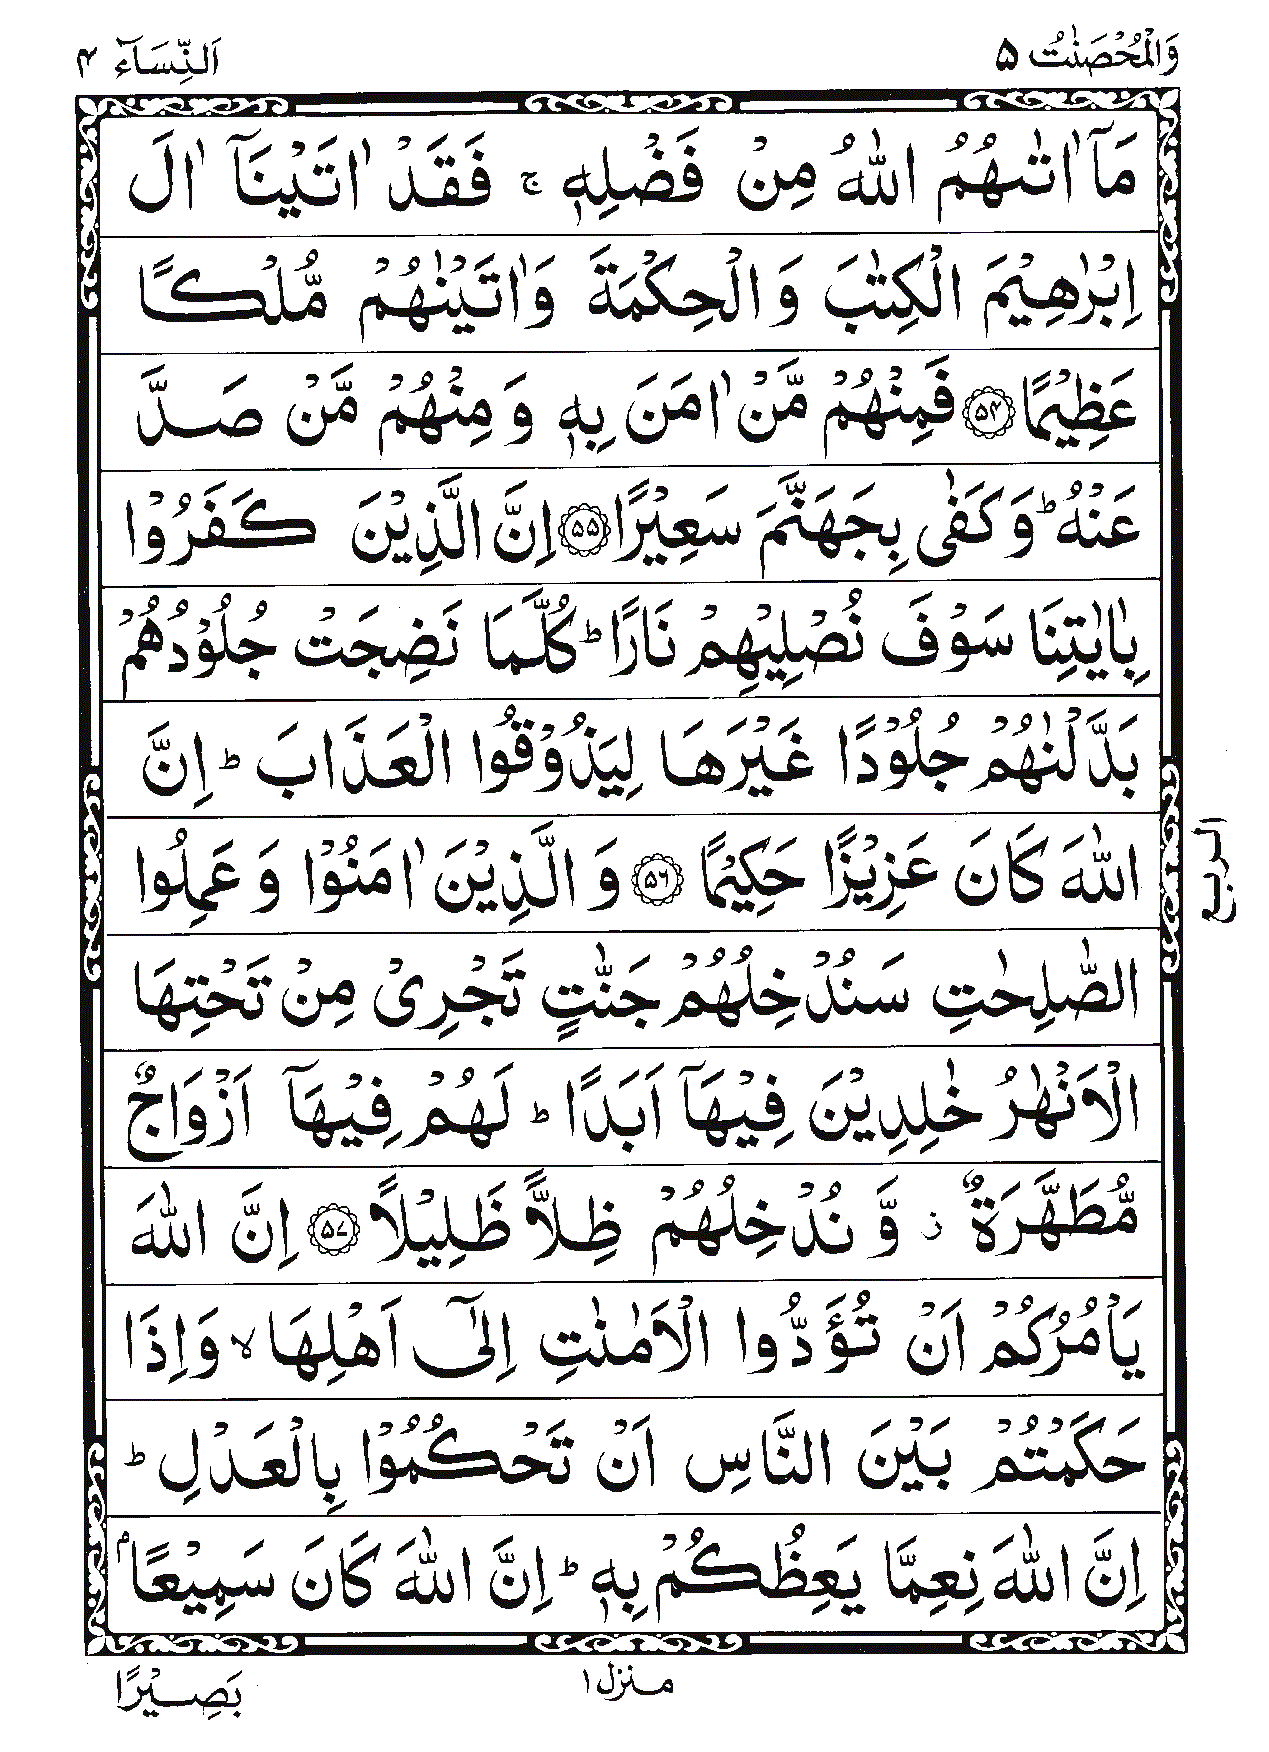 وَالْمُحْصَنٰتُ ۵
اَلنِّسَآءِ ۴
مَاۤ اٰتٰىهُمُ اللّٰهُ مِنْ فَضْلِهٖ ۚ فَقَدْ اٰتَيْنَاۤ اٰلَ
اِبْرٰهِيْمَ الْكِتٰبَ وَ الْحِكْمَةَ وَاٰتَيْنٰهُمْ مُّلْكًا
عَظِيْمًا ﴿۵۴﴾ فَمِنْهُمْ مَّنْ اٰمَنَ بِهٖ وَ مِنْهُمْ مَّنْ صَدَّ
عَنْهُ ؕ وَكَفٰى بِجَهَنَّمَ سَعِيْرًا ﴿۵۵﴾ اِنَّ الَّذِيْنَ كَفَرُوْا
بِاٰيٰتِنَا سَوْفَ نُصْلِيْهِمْ نَارًا ؕ كُلَّمَا نَضِجَتْ جُلُوْدُهُمْ
بَدَّلْنٰهُمْ جُلُوْدًا غَيْرَهَا لِيَذُوْقُوا الْعَذَابَ ؕ اِنَّ
اللّٰهَ كَانَ عَزِيْزًا حَكِيْمًا ﴿۵۶﴾ وَ الَّذِيْنَ اٰمَنُوْا وَ عَمِلُوا
الصّٰلِحٰتِ سَنُدْخِلُهُمْ جَنّٰتٍ تَجْرِىْ مِنْ تَحْتِهَا
الْاَنْهٰرُ خٰلِدِيْنَ فِيْهَاۤ اَبَدًا ؕ لَهُمْ فِيْهَاۤ اَزْوَاجٌ
مُّطَهَّرَةٌ ۫ وَّ نُدْخِلُهُمْ ظِلًّا ظَلِيْلًا ﴿۵۷﴾ اِنَّ اللّٰهَ
يَاْمُرُكُمْ اَنْ تُؤَدُّوا الْاَمٰنٰتِ اِلٰٓى اَهْلِهَا ۙ وَاِذَا
حَكَمْتُمْ بَيْنَ النَّاسِ اَنْ تَحْكُمُوْا بِالْعَدْلِ ؕ
اِنَّ اللّٰهَ نِعِمَّا يَعِظُكُمْ بِهٖ ؕ اِنَّ اللّٰهَ كَانَ سَمِيْعًاۢ
الربع
منزل ۱
بَصِيْرًا